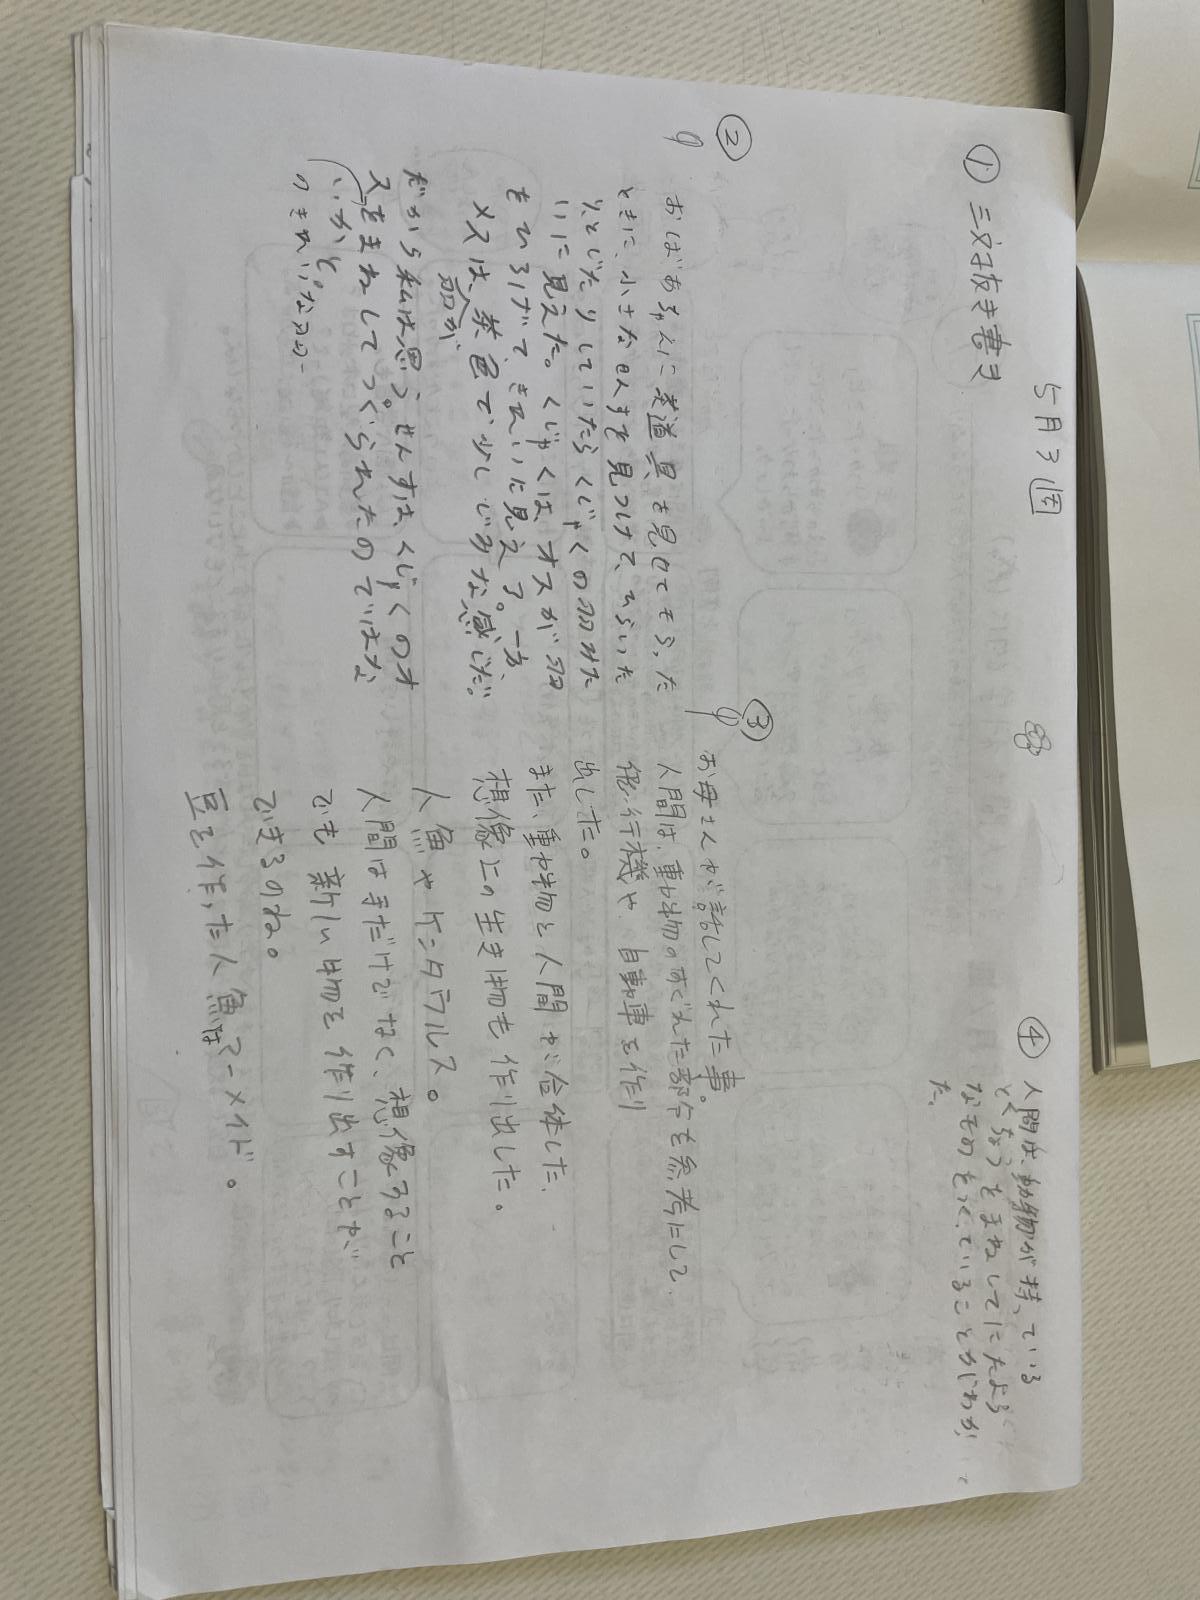 5月3週
① 三文抜き書き
②
おばあちゃんに茶道具を見せてもらった
ときに、小さなせんすを見つけて、ひらいた
りとじたりしていたらくじゃくの羽みた
いに見えた。くじゃくは、オスが羽
をひろげてきれいに見える。一方、
メスは、茶色で少しじみな感じだ。
羽が
だから私は思う。せんすは、くじゃくのオ
スをまねしてつくられたのではな
いかと。
のきれいな羽
③
お母さんが話してくれた事。
人間は、動物のすぐれた部分を参考にして
飛行機や自動車を作り
出した。
また、動物と人間が合体した、
想像上の生き物も作り出した。
人魚やケンタウルス。
人間はまだけでなく、想像すること
でも新しい物を作り出すことが
できるのね。
豆を作った人魚はマーメイド。
④ 人間は、動物が持っている
とくちょうをまねしてにたよう
なものをつくっていることがわかっ
た。